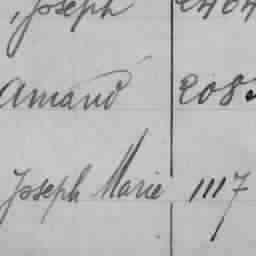 , Joseph
Amand 208
Joseph Marie 1117